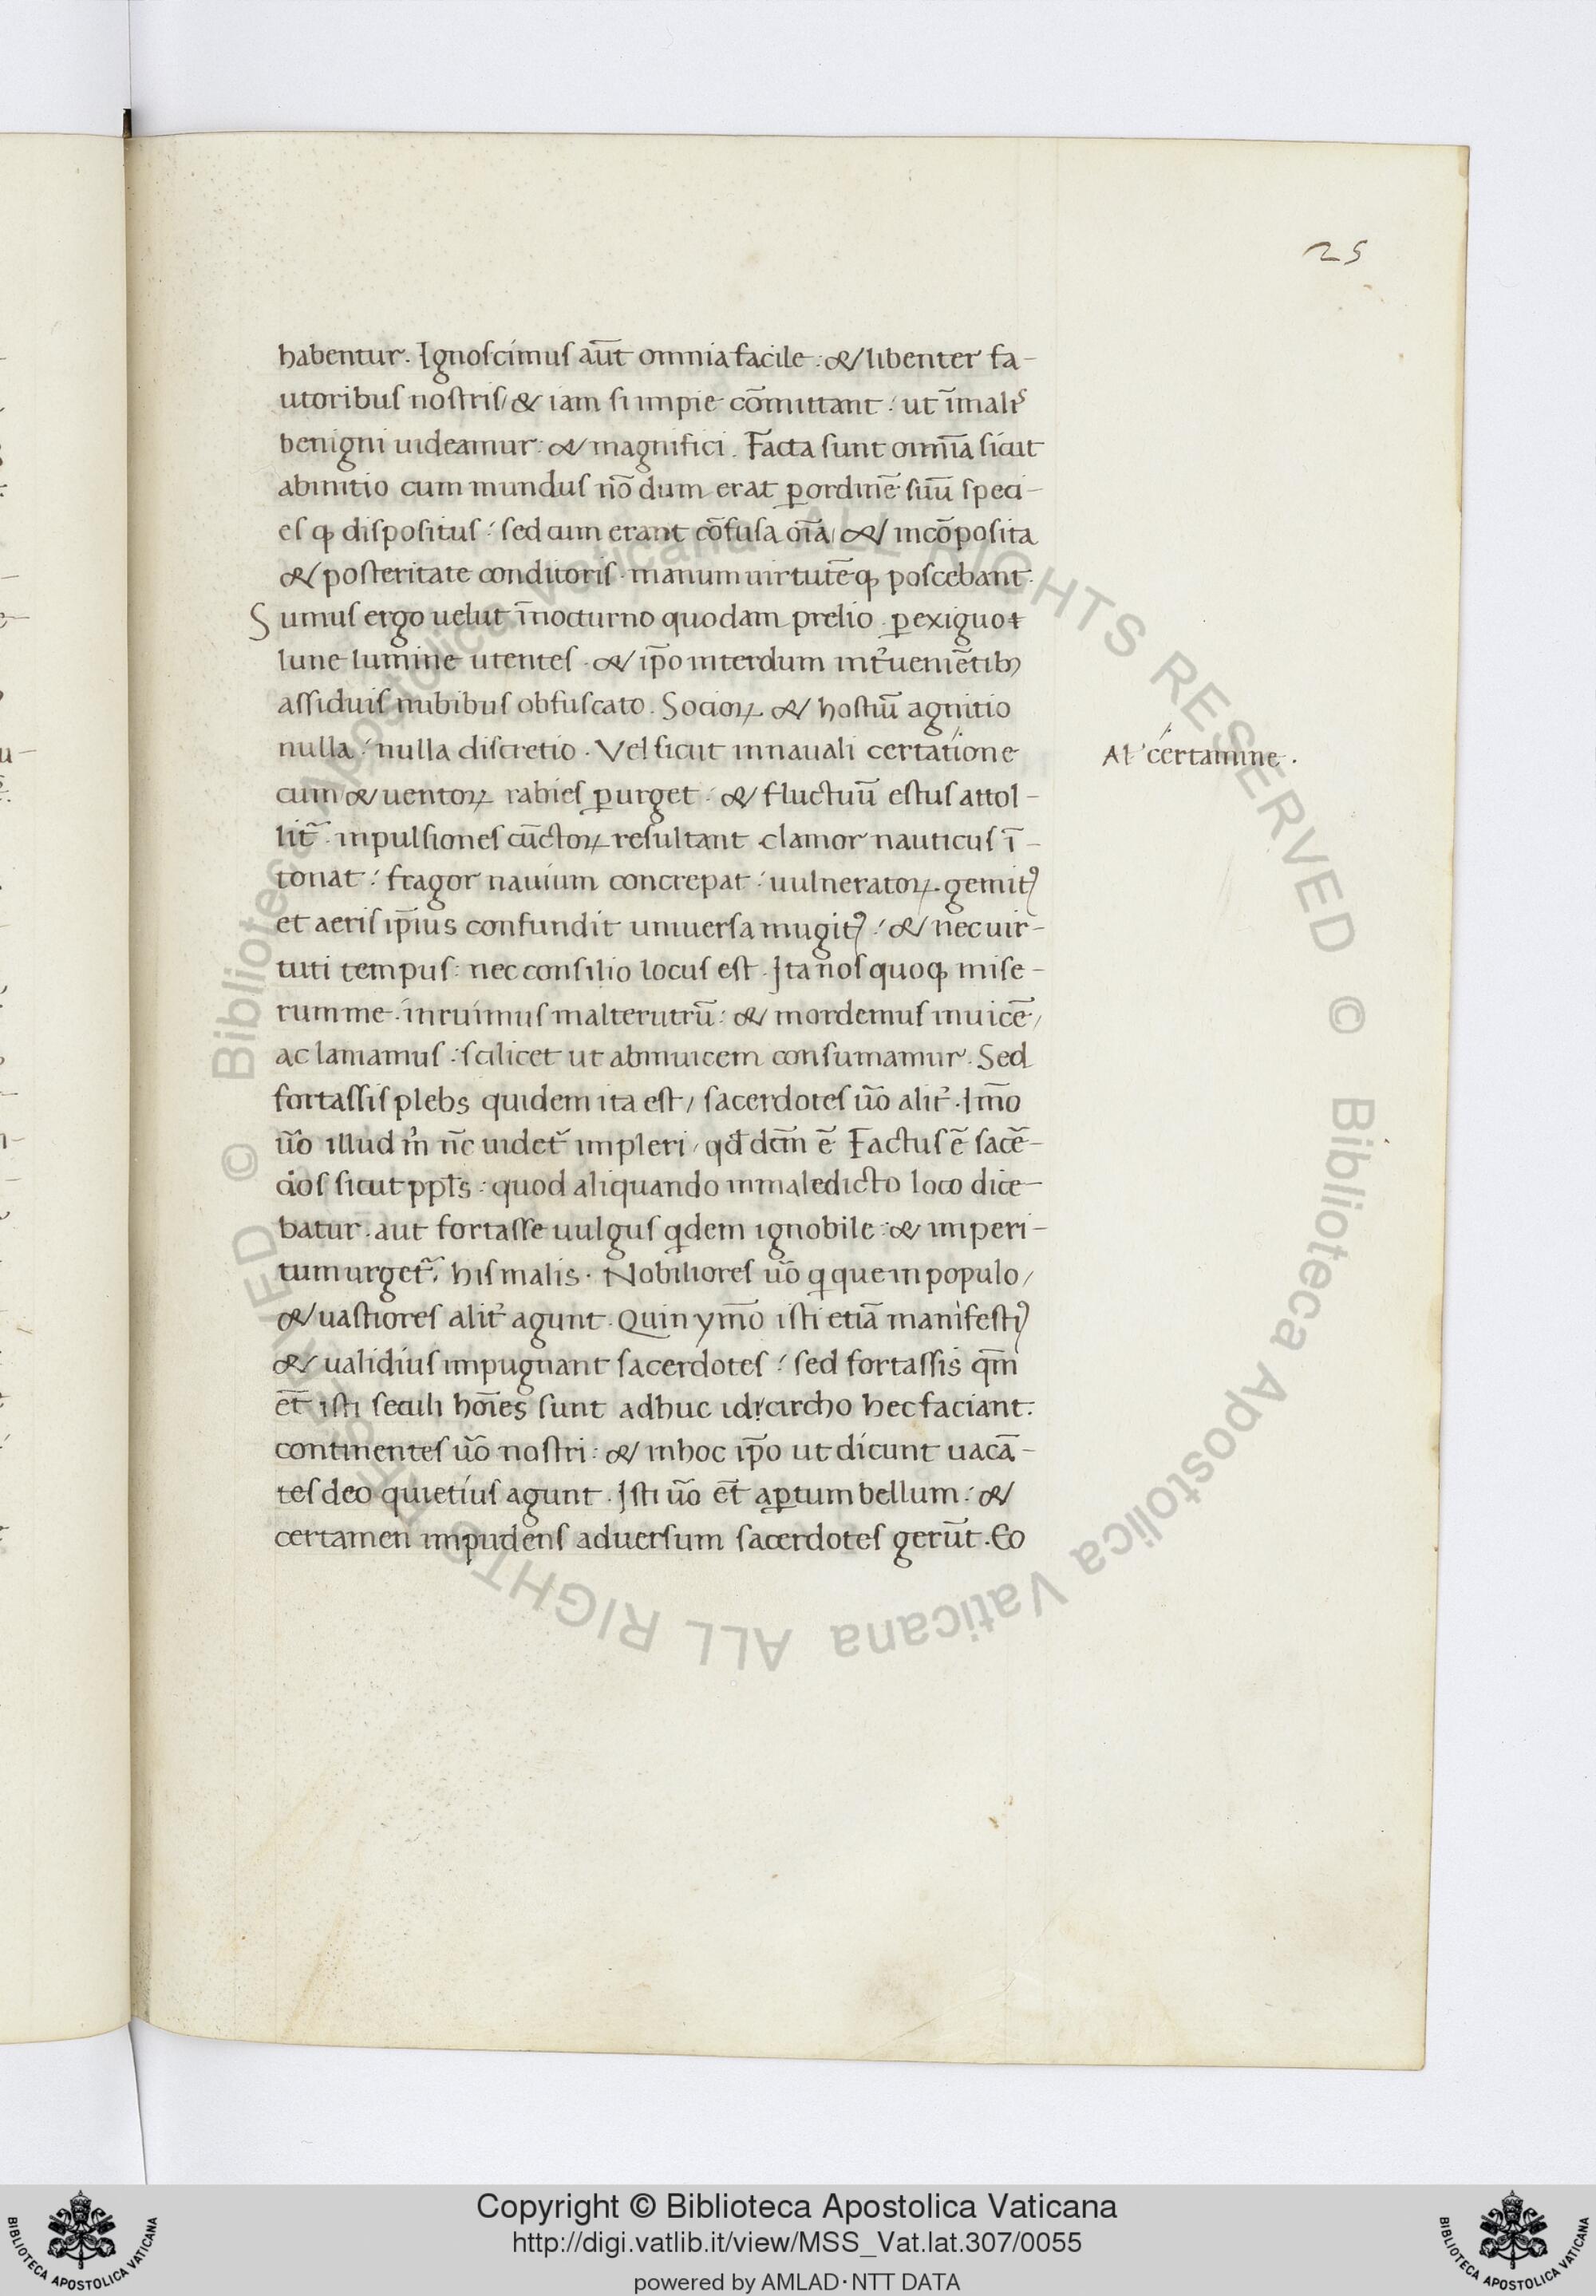 25
habentur. Ignoscimus aūt omnia facile : & libenter fa-
utoribus nostris / & iam si impie cōmittant : ut ī malis
benigni uideamur : & magnifici . Facta sunt omnīa sicut
abinitio cum mundus nō dum erat ꝑ ordinē suū speci-
es qꝫ dispositus : sed cum erant cōfusa oīa / & incōposita
& posteritate conditoris . manum uirtutēqꝫ poscebant .
Sumus ergo uelut ī nocturno quodam prelio . ꝑ exiguo
lune lumine utentes . & ip̄o interdum int᷑ueniētibꝫ
assiduis nubibus obfuscato . Socioꝝ & hostiū agnitio
nulla : nulla discretio . Vel sicut in nauali certatione
Al' certamine .
cum & uentoꝝ rabies ꝑurget : & fluctuū estus attol-
lit᷑ . inpulsiones cūctoꝝ resultant . clamor nauticus ī-
tonat : fragor nauium concrepat : uulneratoꝝ . gemitꝰ
et aeris ip̄ius confundit uniuersa mugitꝰ : & nec uir-
tuti tempus : nec consilio locus est . Ita nos quoqꝫ mise-
rum me . inruimus inalterutrū : & mordemus inuicē /
ac laniamus : scilicet ut abinuicem consumamur . Sed
fortassis plebs quidem ita est / sacerdotes ūo alit᷑ . Im̄o
ūo illud m̊ n̄c uidet᷑ impleri / qd̄ dcm̄ ē Factus ē sacē-
dos sicut ppl̄s : quod aliquando in maledicto loco dice-
batur . aut fortasse uulgus qͥdem ignobile : & imperi-
tum urget᷑ / his malis . Nobiliores ūo qͥ que in populo /
& uastiores alit᷑ agunt . Quin ym̄o isti etiā manifestiꝰ
& ualidius impugnant sacerdotes : sed fortassis qm̄
et̄ isti seculi hoīes sunt adhuc idcircho hec faciant .
continentes ūo nostri : & in hoc ip̄o ut dicunt uacā-
tes deo quietius agunt . Isti ūo et̄ aꝑtum bellum : &
certamen impudens aduersum sacerdotes gerūt . Eo
Copyright © Biblioteca Apostolica Vaticana
http://digi.vatlib.it/view/MSS_Vat.lat.307/0055
powered by AMLAD·NTT DATA